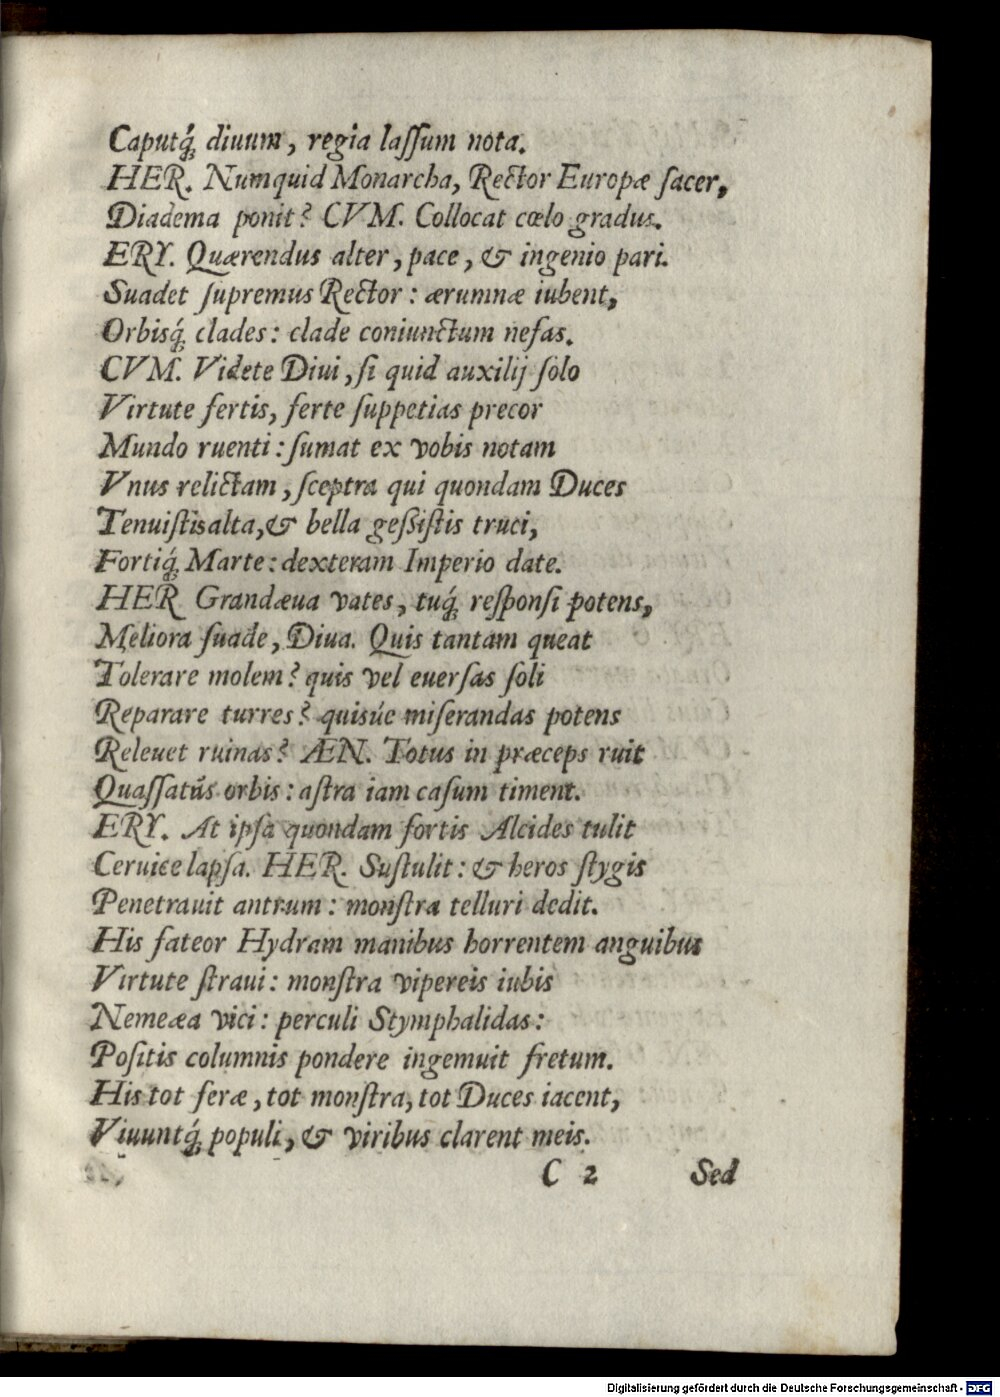 Caputq́; diuum, regia laſſum nota.
HER. Numquid Monarcha, Rector Europæ ſacer,
Diadema ponit? CVM. Collocat cœlo gradus.
ERY. Quærendus alter, pace, & ingenio pari.
Suadet ſupremus Rector: ærumnæ iubent,
Orbisq́; clades: clade coniunctum nefas.
CVM. Videte Diui, ſi quid auxilij ſolo
Virtute fertis, ferte ſuppetias precor
Mundo ruenti: ſumat ex vobis notam
Vnus relictam, ſceptra qui quondam Duces
Tenuiſtis alta, & bella geſsiſtis truci,
Fortiq́; Marte: dexteram Imperio date.
HER Grandæua vates, tuq́; reſponſi potens,
Meliora ſuade, Diua. Quis tantam queat
Tolerare molem? quis vel euerſas ſoli
Reparare turres? quisúe miſerandas potens
Releuet ruinas? ÆN. Totus in præceps ruit
Quaſſatus orbis: aſtra iam caſum timent.
ERY. At ipſa quondam fortis Alcides tulit
Ceruice lapſa. HER. Suſtulit: & heros ſtygis
Penetrauit antrum: monſtra telluri dedit.
His fateor Hydram manibus horrentem anguibus
Virtute ſtraui: monſtra vipereis iubis
Nemeæa vici: perculi Stymphalidas:
Poſitis columnis pondere ingemuit fretum.
His tot feræ, tot monſtra, tot Duces iacent,
Viuuntq́; populi, & viribus clarent meis.
C 2 Sed
Digitalisierung gefördert durch die Deutsche Forschungsgemeinschaft - DFG